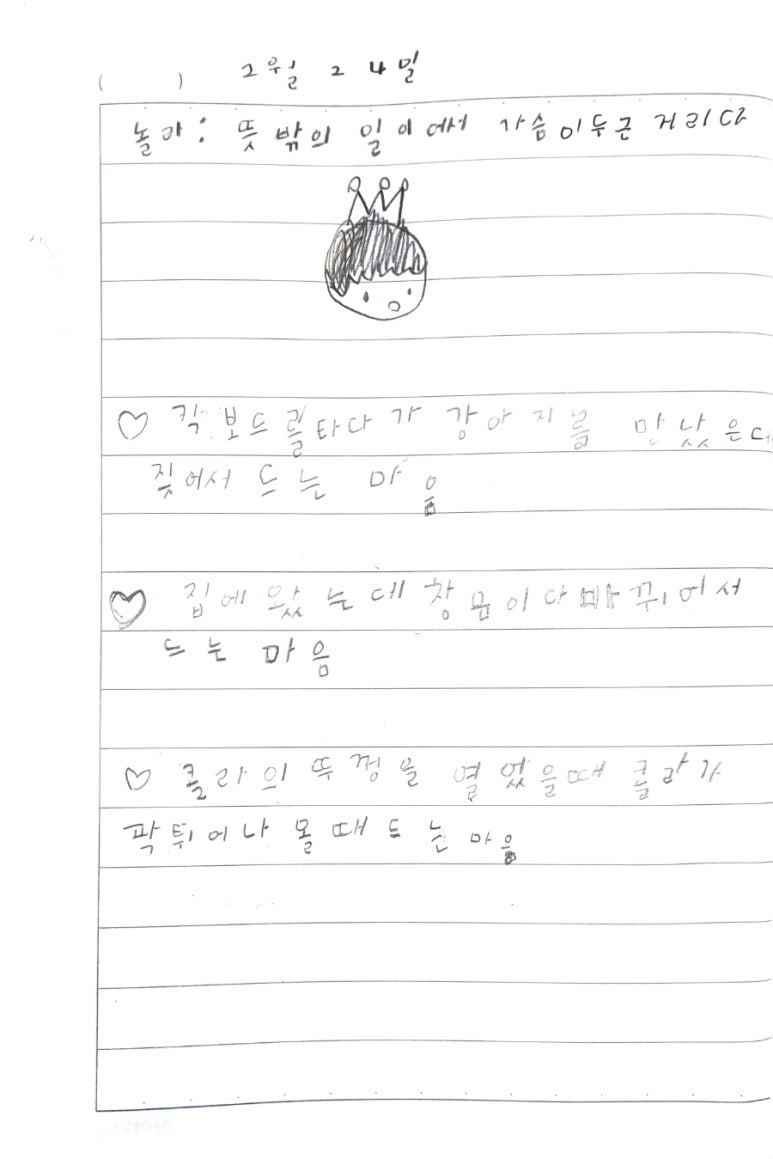 2월 24일
놀라: 뜻밖의 일이어서 가슴이두근 거리다
♡ 킥보드를타다가 강아지를 만났은데
짖어서 드는 마음
♡ 집에 왔는데 창문이다바뀌어서
드는 마음
♡ 콜라의 뚜껑을 열었을때 콜라가
팍튀어나 올때 드는 마음